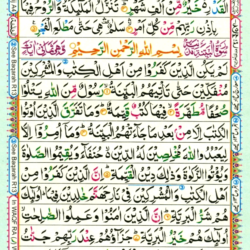 الْقَدْرِ ۙ خَيْرٌ مِّنْ اَلْفِ شَهْرٍ ؕ تَنَزَّلُ الْمَلٰٓئِكَةُ وَالرُّوْحُ فِيْهَا
بِاِذْنِ رَبِّهِمْ ۚ مِنْ كُلِّ اَمْرٍ ۛ سَلٰمٌ ۛ هِىَ حَتّٰى مَطْلَعِ الْفَجْرِ
بِسْمِ اللّٰهِ الرَّحْمٰنِ الرَّحِيْمِ
لَمْ يَكُنِ الَّذِيْنَ كَفَرُوْا مِنْ اَهْلِ الْكِتٰبِ وَالْمُشْرِكِيْنَ
مُنْفَكِّيْنَ حَتّٰى تَاْتِيَهُمُ الْبَيِّنَةُ ۙ رَسُوْلٌ مِّنَ اللّٰهِ يَتْلُوْا
صُحُفًا مُّطَهَّرَةً ۙ فِيْهَا كُتُبٌ قَيِّمَةٌ ؕ وَمَا تَفَرَّقَ الَّذِيْنَ اُوْتُوا
الْكِتٰبَ اِلَّا مِنْۢ بَعْدِ مَا جَآءَتْهُمُ الْبَيِّنَةُ ؕ وَمَاۤ اُمِرُوْۤا اِلَّا
لِيَعْبُدُوا اللّٰهَ مُخْلِصِيْنَ لَهُ الدِّيْنَ ۙ حُنَفَآءَ وَيُقِيْمُوا الصَّلٰوةَ
وَيُؤْتُوا الزَّكٰوةَ وَذٰلِكَ دِيْنُ الْقَيِّمَةِ ؕ اِنَّ الَّذِيْنَ كَفَرُوْا مِنْ
اَهْلِ الْكِتٰبِ وَالْمُشْرِكِيْنَ فِىْ نَارِ جَهَنَّمَ خٰلِدِيْنَ فِيْهَا ؕ اُولٰٓئِكَ
هُمْ شَرُّ الْبَرِيَّةِ ؕ اِنَّ الَّذِيْنَ اٰمَنُوْا وَعَمِلُوا الصّٰلِحٰتِ ۙ
اُولٰٓئِكَ هُمْ خَيْرُ الْبَرِيَّةِ ؕ جَزَآؤُهُمْ عِنْدَ رَبِّهِمْ جَنّٰتُ